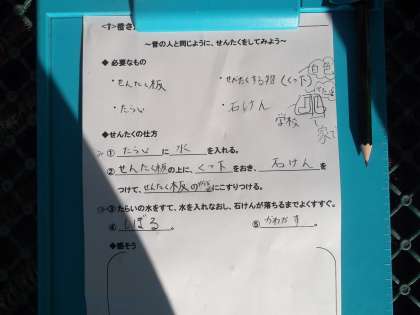 <1>昔さ
～昔の人と同じように、せんたくをしてみよう～
◆ 必要なもの
・せんたく板
・せんたくする物(くつ下)
白色
・たらい
・石けん
学校
家で
◆せんたくの仕方
① たらい に 水 を入れる。
② せんたく板 の上に、くつ下 をおき、石けん を
つけて、せんたく板の にこすりつける。
③ たらいの水をすて、水を入れなおし、石けんが落ちるまでよくすすぐ。
④ しぼる 。
⑤ かわかす 。
◆感そう